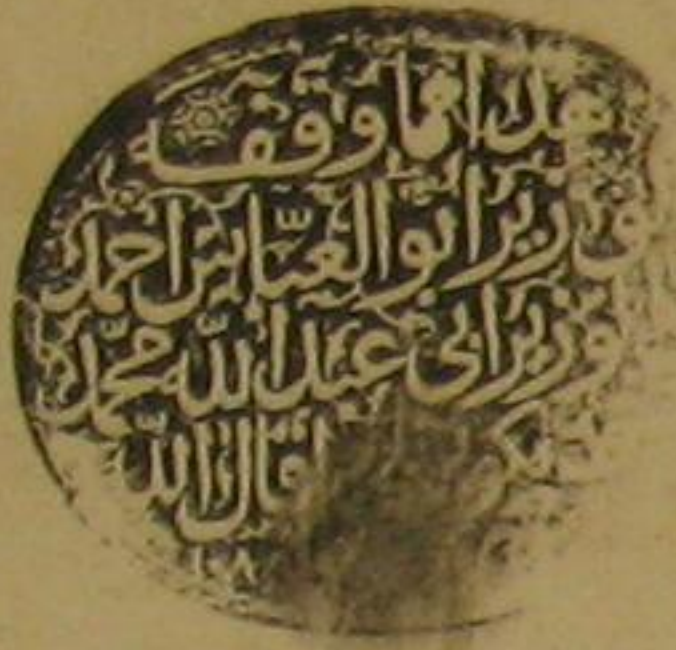 هذا مما وقفه
الوزير ابو العباس احمد
الوزير ابي عبد الله محمد
اقال الله